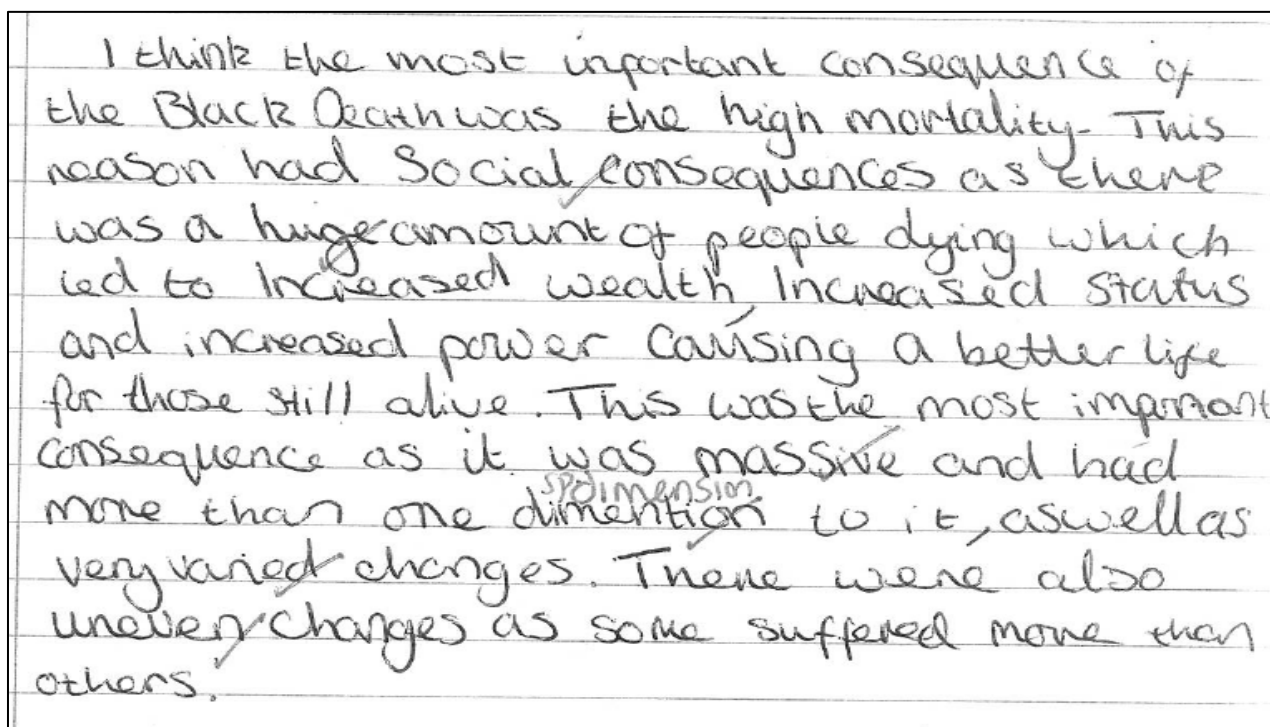 I think the most important consequence of
the Black Death was the high mortality. This
reason had Social consequences as there
was a huge amount of people dying which
led to Increased wealth, Increased Status
and increased power causing a better life
for those still alive. This was the most important
consequence as it was massive and had
sp dimension
more than one dimention to it, aswell as
very varied changes. There were also
uneven changes as some suffered more than
others.